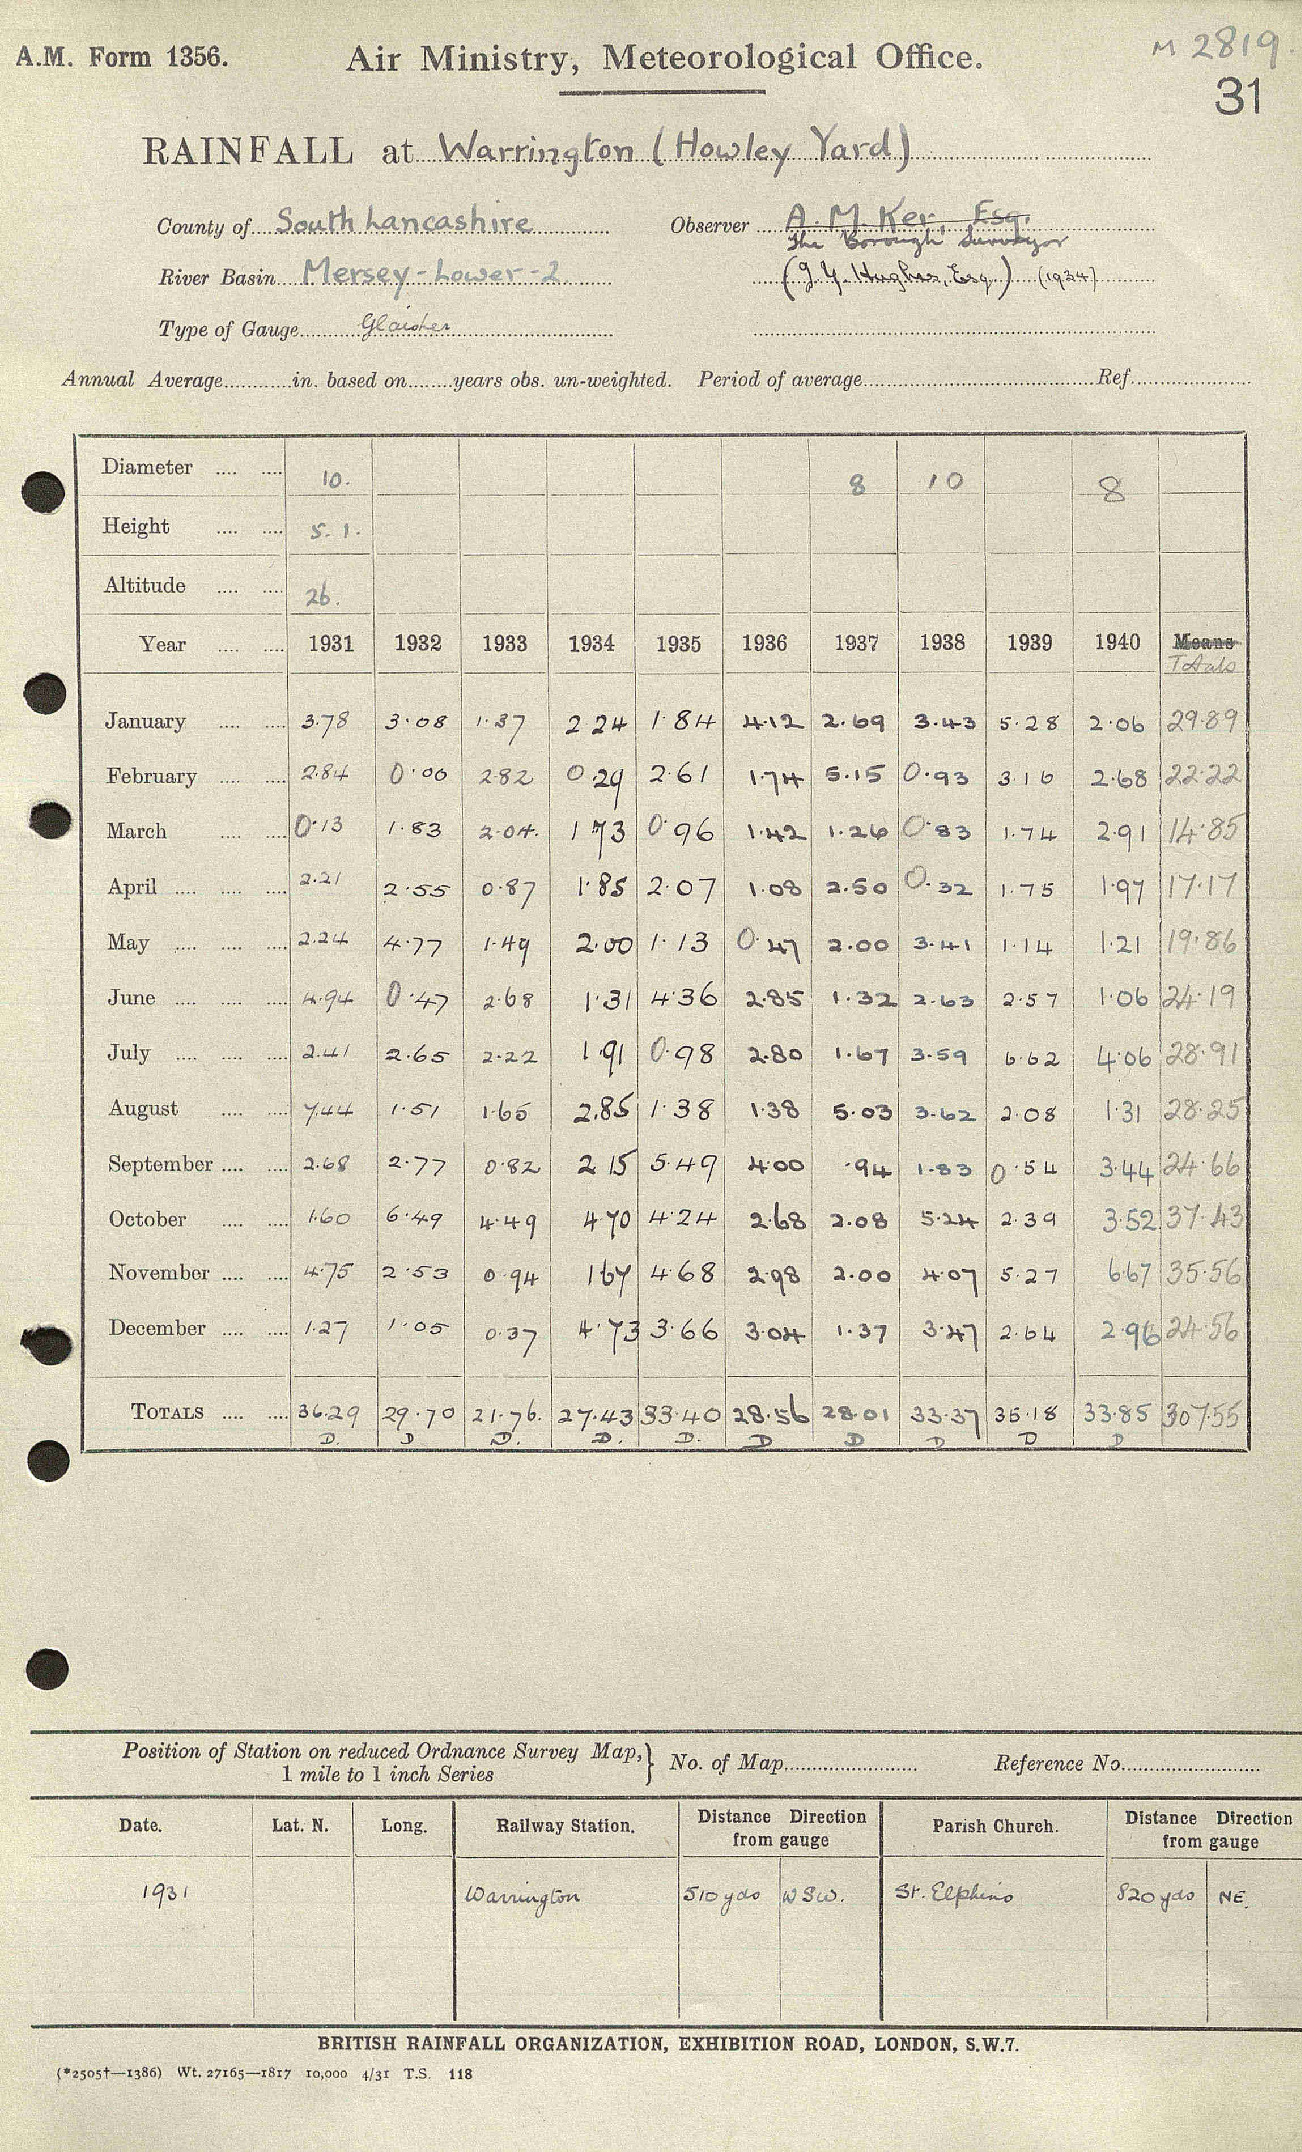 A.M. Form 1356. Air Ministry, Meteorological Office. M 2819.
31
RAINFALL at Warrington (Howley Yard)
County of South Lancashire Observer A. M. Ker, Esq.
The Borough Surveyor
River Basin Mersey-Lower-2 (J.Y. Hughes, Esq.) (1934)
Type of Gauge Glaisher
Annual Average in. based on years obs. un-weighted. Period of average Ref.
Diameter 10. 8 10 8
Height 5.1.
Altitude 26.
Year 1931 1932 1933 1934 1935 1936 1937 1938 1939 1940 Means
Totals
January 3.78 3.08 1.37 2.24 1.84 4.12 2.69 3.43 5.28 2.06 29.89
February 2.84 0.00 2.82 0.29 2.61 1.74 5.15 0.93 3.16 2.68 22.22
March 0.13 1.83 2.04. 1 73 0.96 1.42 1.26 0.83 1.74 2.91 14.85
April 2.21 2.55 0.87 1.85 2.07 1.08 2.50 0.32 1.75 1.97 17.17
May 2.24 4.77 1.49 2.00 1.13 0.47 2.00 3.41 1.14 1.21 19.86
June 4.94 0.47 2.68 1.31 4.36 2.85 1.32 2.63 2.57 1.06 24.19
July 2.41 2.65 2.22 1 91 0.98 2.80 1.67 3.59 6.62 4.06 28.91
August 7.44 1.51 1.65 2.85 1.38 1.38 5.03 3.62 2.08 1.31 28.25
September 2.68 2.77 0.82 2 15 5.49 4.00 .94 1.83 0.54 3.44 24.66
October 1.60 6.49 4.49 4.70 4.24 2.68 2.08 5.24 2.39 3.52 37.43
November 4.75 2.53 0.94 1 67 4.68 2.98 2.00 4.07 5.27 6.67 35.56
December 1.27 1.05 0.37 4.73 3.66 3.04 1.37 3.47 2.64 2.96 24.56
TOTALS 36.29 29.70 21.76. 27.43 33.40 28.56 28.01 33.37 35.18 33.85 307.55
D. D D. D. D. D D D D D
Position of Station on reduced Ordnance Survey Map, } No. of Map Reference No.
1 mile to 1 inch Series
Date. Lat. N. Long. Railway Station. Distance Direction from gauge Parish Church. Distance Direction from gauge
1931 Warrington 510 yds WSW. St. Elphins 820 yds NE.
BRITISH RAINFALL ORGANIZATION, EXHIBITION ROAD, LONDON, S.W.7.
(*2505†—1386) Wt. 27165—1817 10,000 4/31 T.S. 118